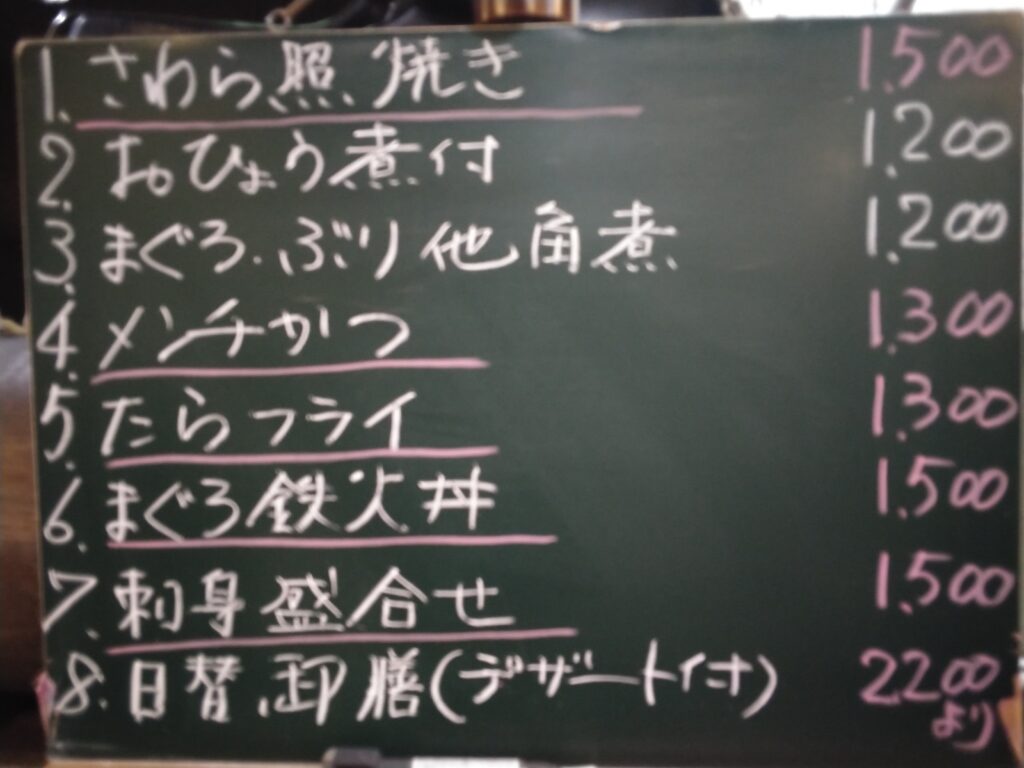 1. さわら照焼き 1.500
2. おひょう煮付 1.200
3. まぐろ.ぶり他角煮 1.200
4. メンチかつ 1.300
5. たらフライ 1.300
6. まぐろ鉄火丼 1.500
7. 刺身盛合せ 1.500
8. 日替.御膳(デザート付) 2.200
より